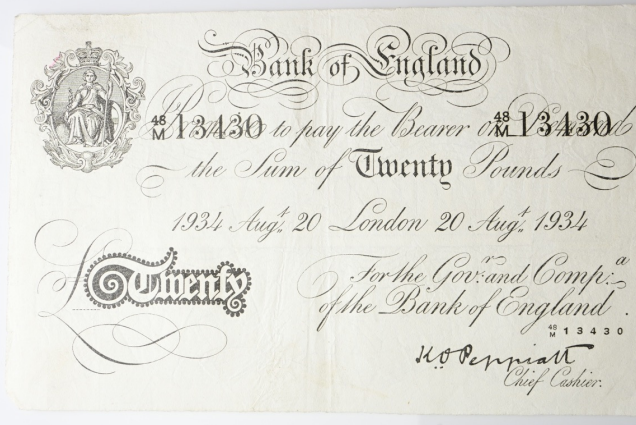 Bank of England
48/M 13430 to pay the Bearer on 48/M 13430
the Sum of Twenty Pounds
1934 Augt. 20 London 20 Augt. 1934
£Twenty
For the Govr. and Compa.
of the Bank of England.
48/M 13430
K.O Peppiatt
Chief Cashier.